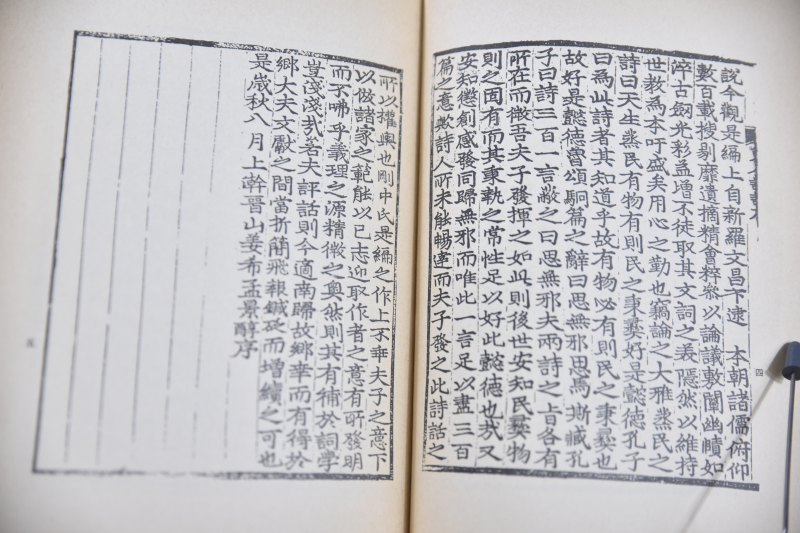 說今觀是編上自新羅文昌下逮 本朝諸儒俯仰
數百載搜剔靡遺摘精會粹叅以論議敷闡幽賾如
淬古劔光彩益增不徒取其文詞之美隱然以維持
世教爲本吁盛矣用心之勤也竊論之大雅烝民之
詩曰天生烝民有物有則民之秉彝好是懿德孔子
曰爲此詩者其知道乎故有物必有則民之秉彝也
故好是懿德魯頌駉篇之辭曰思無邪思馬斯臧孔
子曰詩三百一言蔽之曰思無邪夫兩詩之旨各有
所在而微吾夫子發揮之如此則後世安知民彝物
則之固有而其秉執之常性足以好此懿德也㢤又
安知懲創感發同歸無邪而唯此一言足以盡三百
篇之意歟詩人所未能暢達而夫子發之此詩話之
四
所以權輿也剛中氏是編之作上不乖夫子之意下
以倣諸家之範能以已志迎取作者之意有所發明
而不咈乎義理之源精微之奧然則其有補於詞學
豈淺淺㢤若夫評話則今適南歸故鄉幸而有得於
鄉大夫文獻之間當折簡飛報鍼砭而增續之可也
是歲秋八月上澣晉山姜希孟景醇序
五